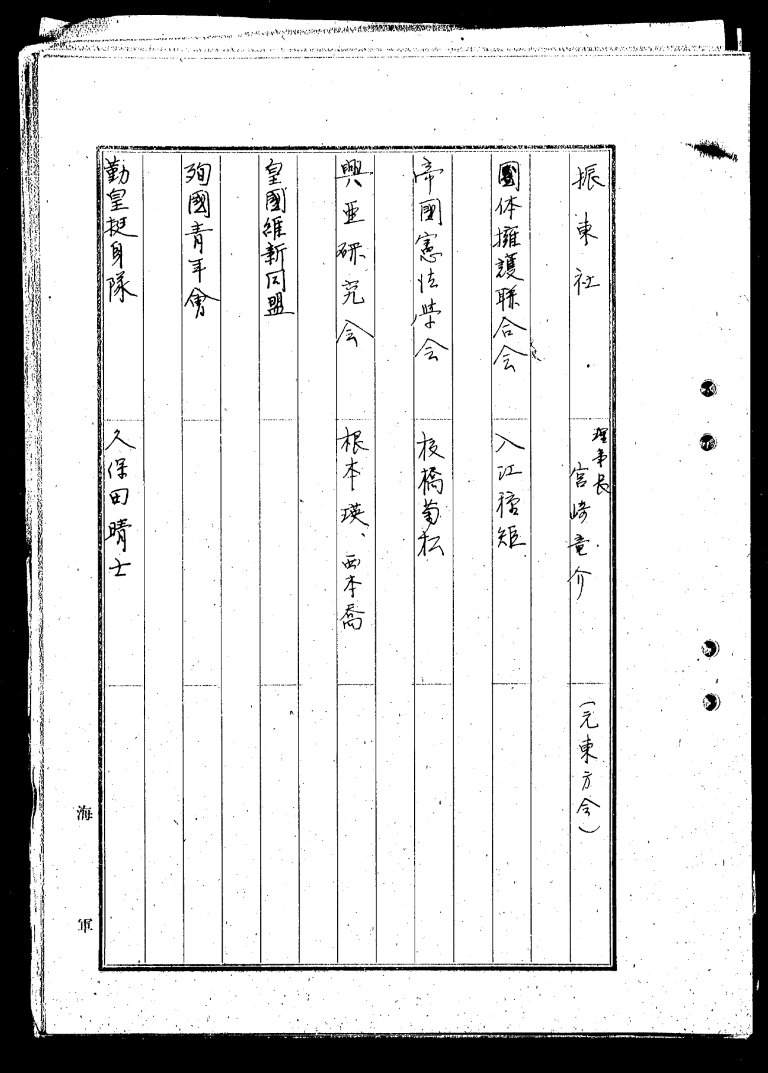 振東社 理事長 宮崎竜介 (元東方会)
國体擁護聯合会 入江種矩
帝國憲法学会 板橋菊松
興亜研究会 根本瑛、西本喬
皇國維新同盟
殉國青年會
勤皇挺身隊 久保田晴士
海軍